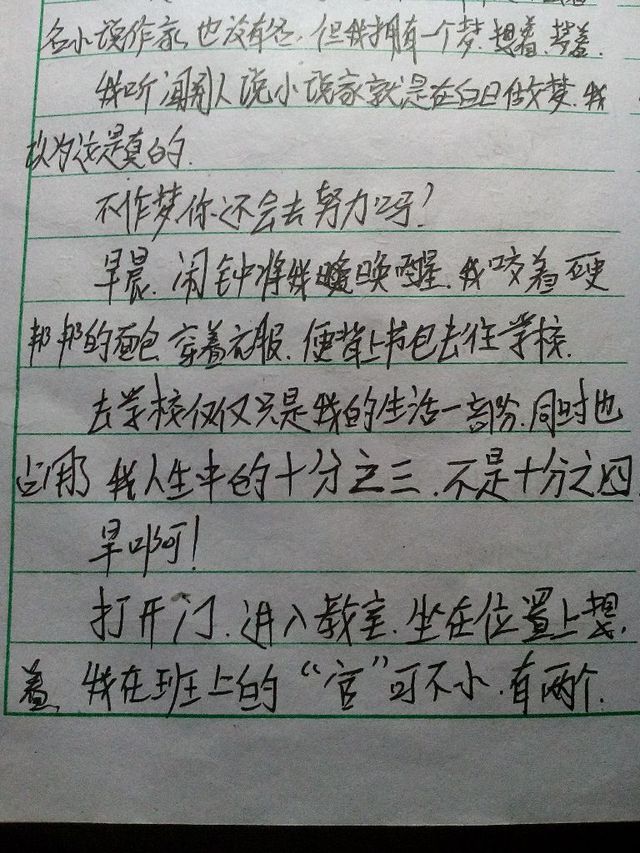 名小说作家也没有过,但我拥有一个梦.想着.梦着.
我听闻别人说小说家就是在白日做梦.我
以为这是真的.
不作梦你还会去努力吗?
早晨.闹钟将我唤醒.我咬着硬
邦邦的面包.穿着衣服.便背上书包去往学校.
去学校仅仅只是我的生活一部份.同时也
占用了我人生中的十分之三.不是十分之四
早啊!
打开门.进入教室.坐在位置上想
着.我在班上的“官”可不小.有两个.